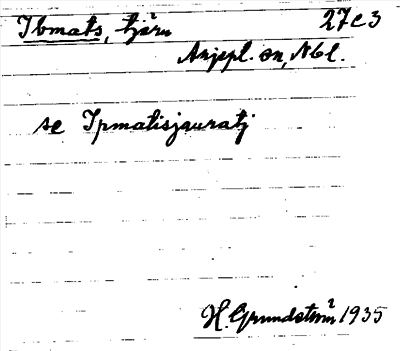 Ibmats, tjärn 27e3
Arjepl. sn, Nbl.
se Ipmatisjauratj
H. Grundström 1935